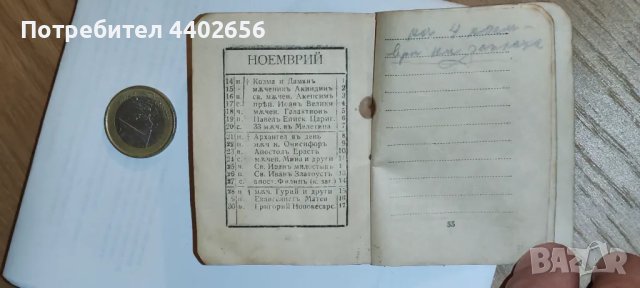 Потребител 4402656
НОЕМВРИЙ
14 п. Козма и Дамянъ 1
15 мѫченикъ Акиндинъ 2
16 н. св. мѫчен. Акепсим 3
17 с. прѣп. Иоан Велики 4
18 ч. мѫчен. Галактионъ 5
19 п. Павелъ Еписк Цариг. 6
20 с. 33 мѫч. въ Мелетина 7
21 н. Архангел въ день 8
22 п мѫч н. Онисифор 9
23 в. Апостолъ Ерастъ 10
24 с. мѫчен. Мина и други 11
25 ч. Св. Иоан милостив 12
26 п. Св. Иван Златоустъ 13
27 с. апост. Филип (к. заг.) 14
28 н мѫч Гурий и други 15
Евангелистъ Матей 16
30 в. Григорий Неокесарс. 17
на 4 ноем-
ври
33
BAZAR